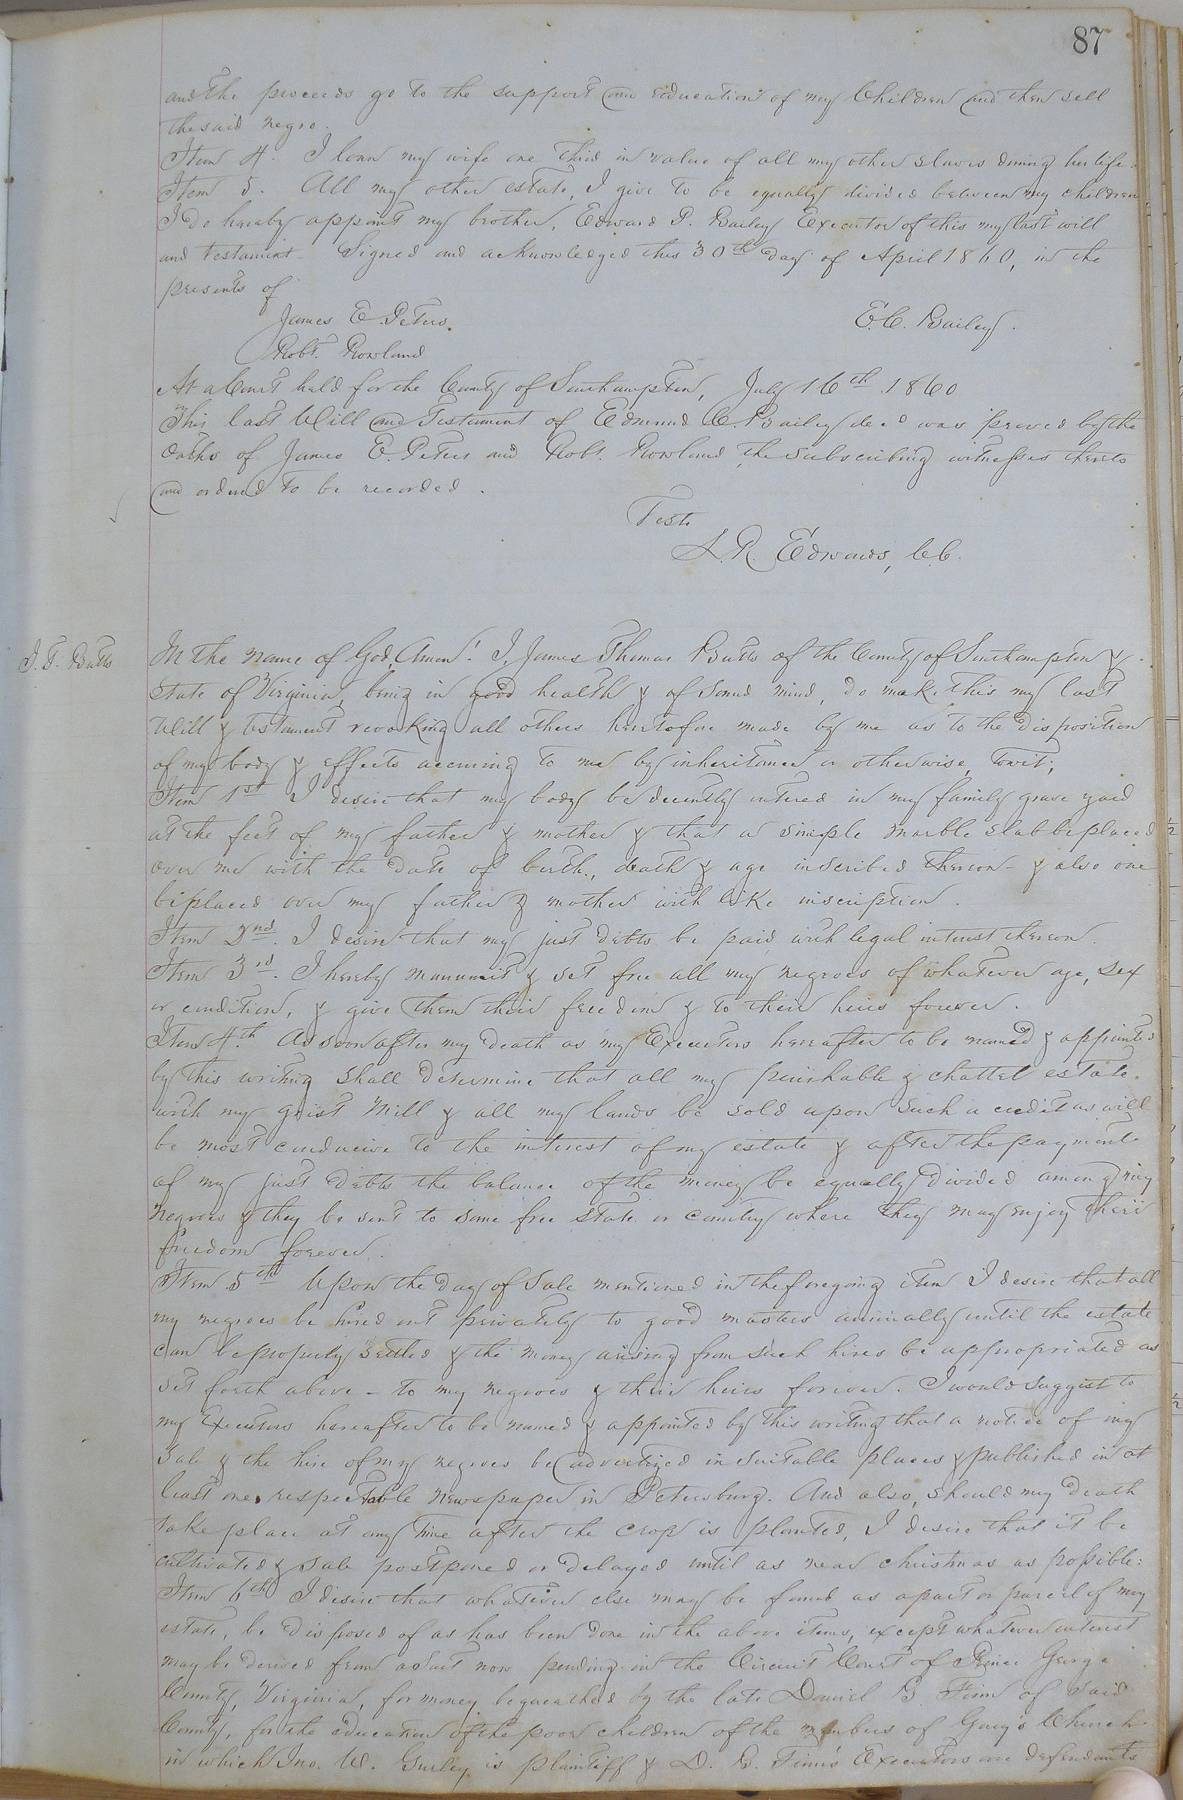 87
and the proceeds go to the support and Education of my Children and then sell
the said negro.
Item 4. I loan my wife one third in value of all my other slaves during her life.
Item 5. All my other estate, I give to be equally divided between my children
I do hereby appoint my brother, Edward P. Bailey Executor of this my last will
and testament. Signed and acknowledged this 30th day of April 1860, in the
presents of
James E. Peters.
E. C. Bailey.
Robt. Rowland
At a Court held for the County of Southampton, July 16th 1860
This last Will and Testament of Edmund C. Bailey decd was proved by the
Oaths of James E. Peters and Robt. Rowland the subscribing witnesses thereto
and ordered to be recorded.
Teste
L. R. Edwards, C.C.
J. T. Butts
In the name of God, Amen! I, James Thomas Butts of the County of Southampton &
State of Virginia, being in good health & of sound mind, do make this my last
Will & testament revoking all others heretofore made by me as to the disposition
of my body & effects accruing to me by inheritance or otherwise, towit;
Item 1st I desire that my body be decently intered in my family grave yard
at the feet of my father & mother & that a simple marble slab be placed
over me with the date of birth, death & age inscribed thereon - & also one
be placed over my father & mother with like inscription.
Item 2nd. I desire that my just debts be paid with legal interest thereon.
Item 3rd. I hereby manumit & set free all my negroes of whatever age, sex
or condition, & give them their freedom & to their heirs forever.
Item 4th As soon after my death as my Executors hereafter to be named & appointed
by this writing shall determine that all my perishable & chattel estate.
with my grist Mill & all my lands be sold upon such a credit as will
be most conducive to the interest of my estate & after the payment
of my just debts the balance of the money be equally divided among my
negroes & they be sent to some free state or country where they may enjoy their
freedom forever.
Item 5th Upon the day of Sale mentioned in the foregoing item I desire that all
my negroes be hired out privately to good masters annually until the estate
can be properly settled & the money arising from such hires be appropriated as
set forth above - to my negroes & their heirs forever. I would suggest to
my Executors hereafter to be named & appointed by this writing that a notice of my
sale & the hire of my negroes be advertized in suitable places & published in at
least one respectable Newspaper in Petersburg. And also, should my death
take place at any time after the crop is planted, I desire that it be
cultivated & sale postponed or delayed until as near christmas as possible:
Item 6th I desire that whatever else may be found as a part or parcel of my
estate, be disposed of as has been done in the above items, except whatever interest
may be derived from a suit now pending in the Circuit Court of Prince George
County, Virginia, for money bequeathed by the late Daniel B. Finn of said
County, for the education of the poor children of the members of Gary's Church
in which Jno. W. Gurley is plaintiff & D. B. Finn's Executors are defendants